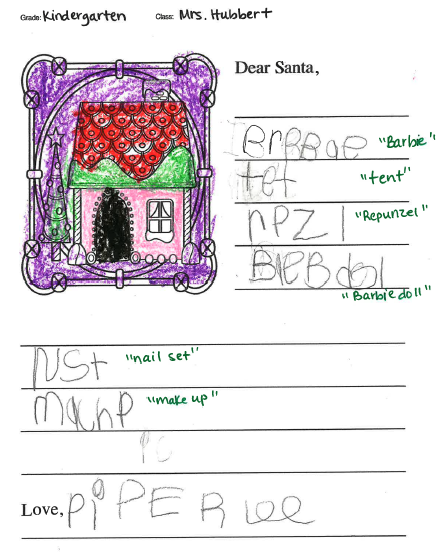 Grade: Kindergarten Class: Mrs. Hubbert
Dear Santa,
BrBBae "Barbie"
tet "tent"
nPZl "Repunzel"
BreBdol
"Barbie doll"
NSt "nail set"
machp "make up"
Love, PiPER Lee